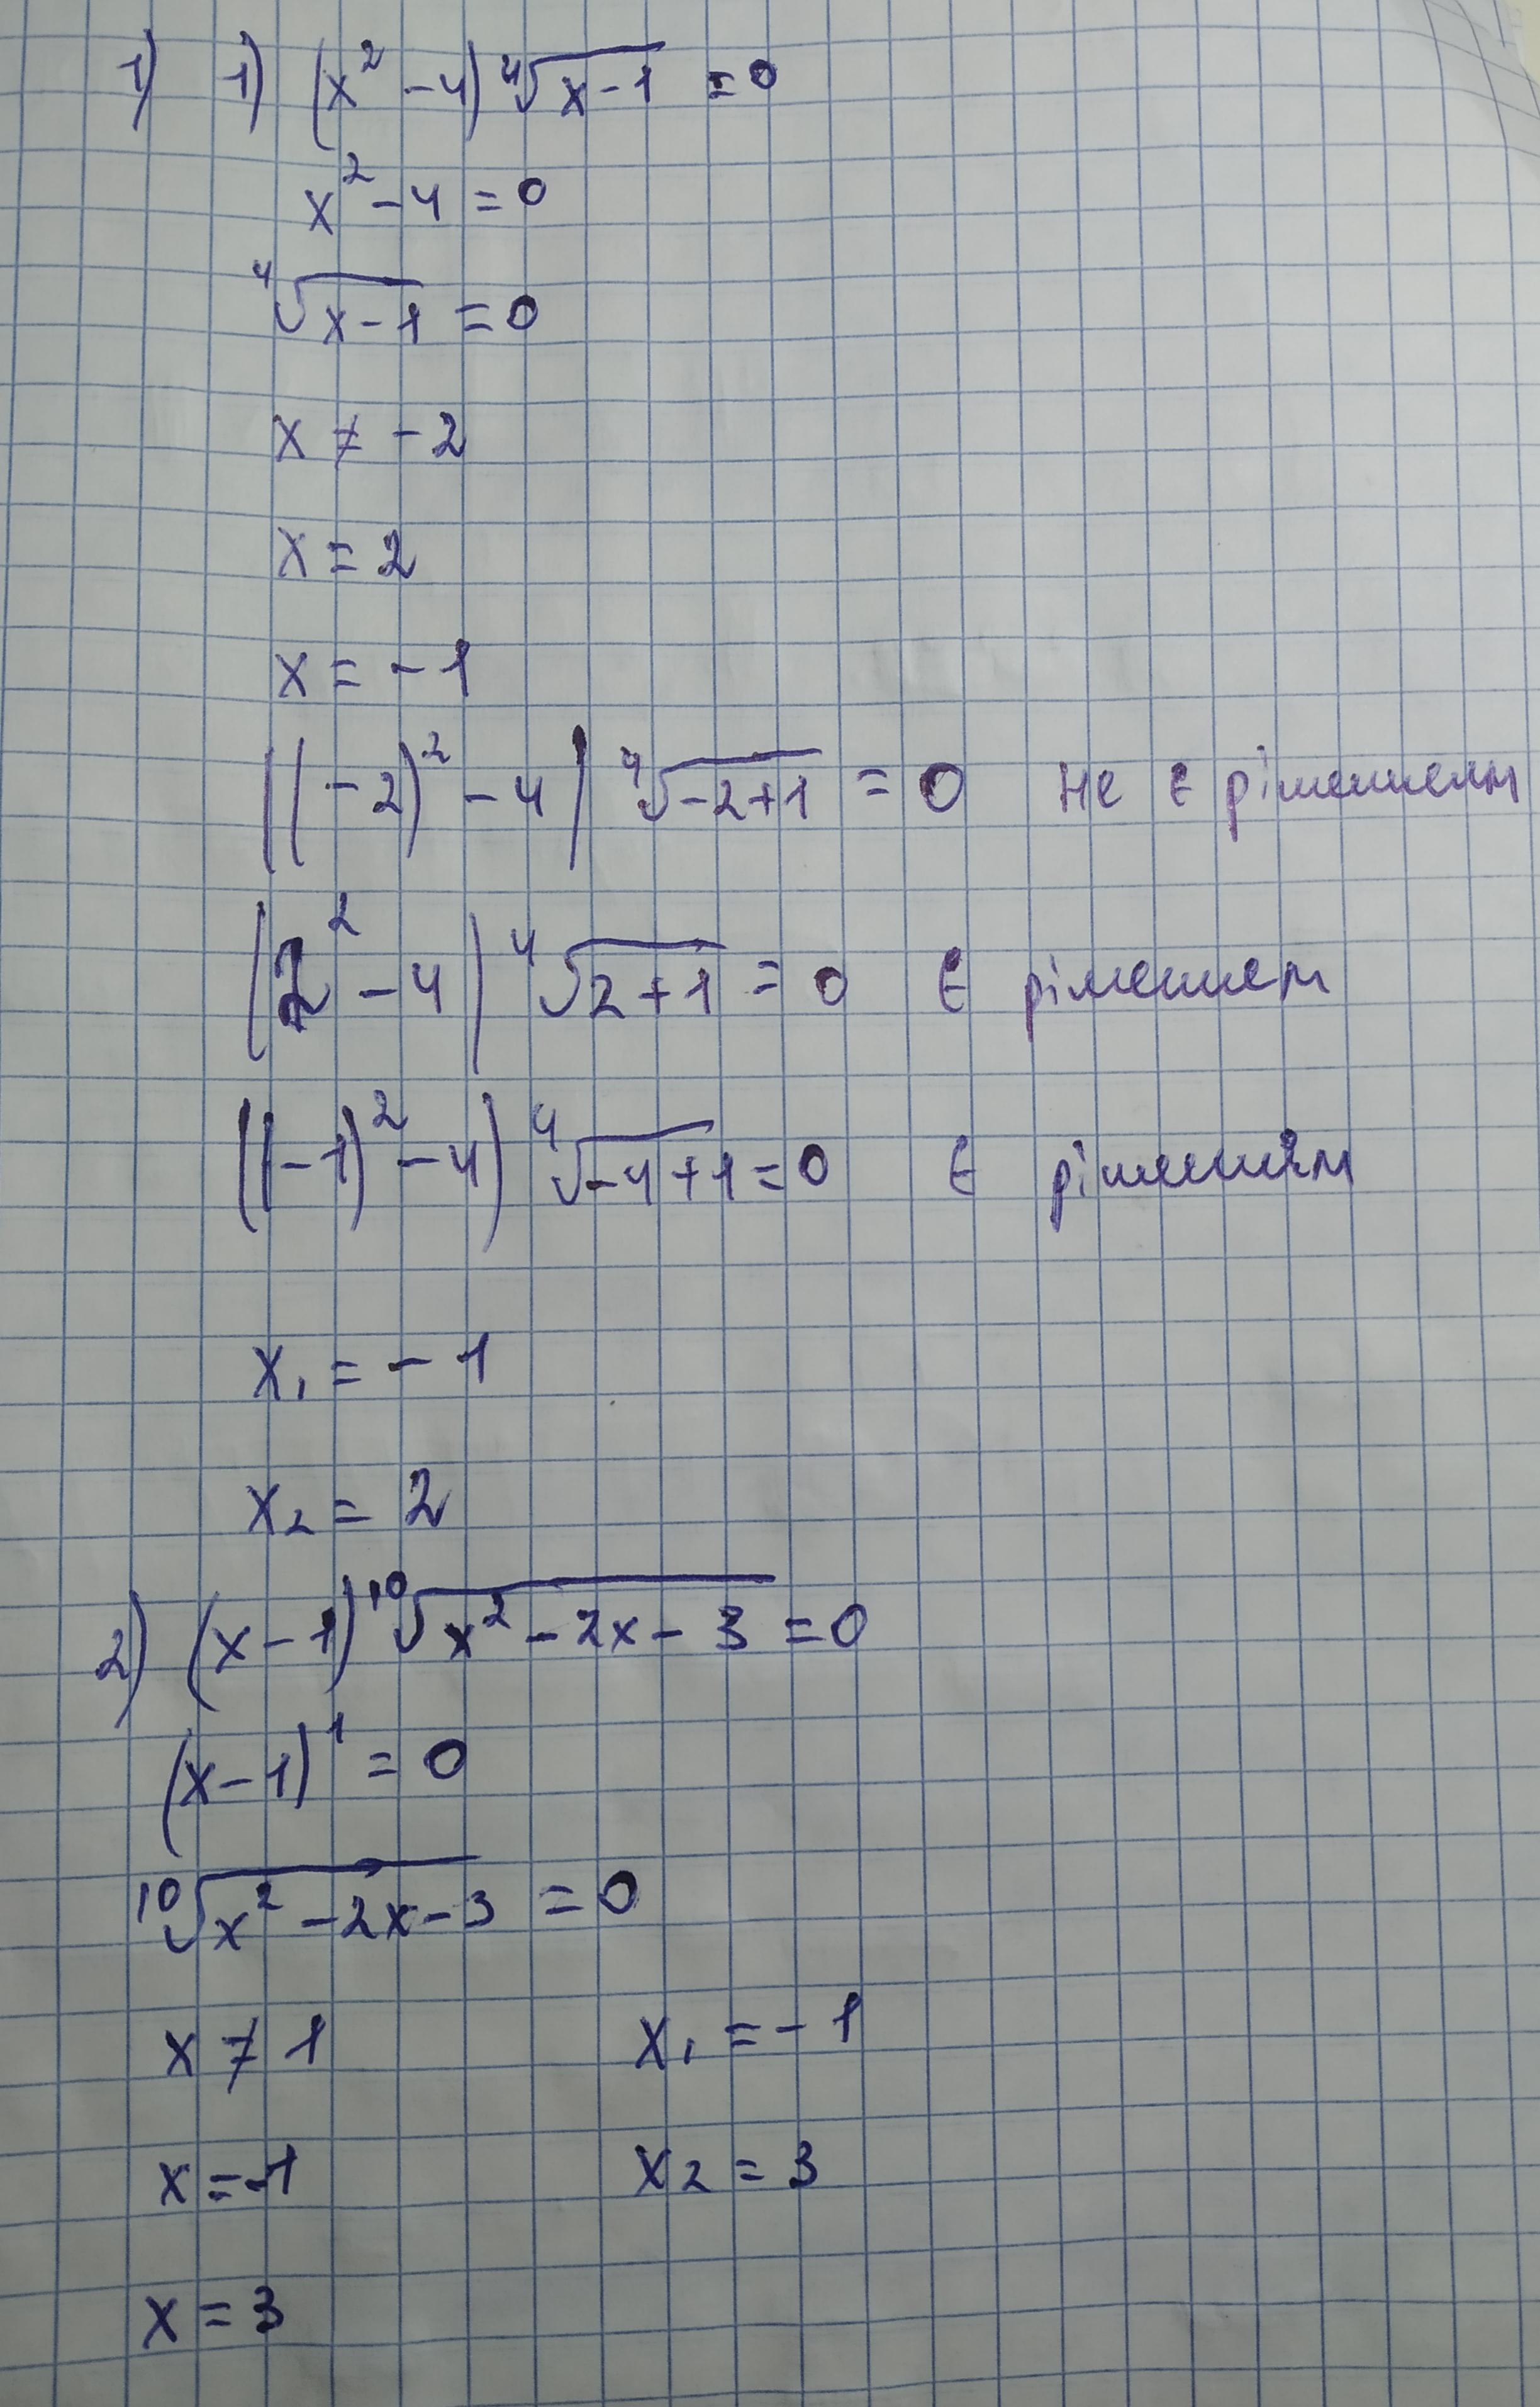 1) 1) (x² - 4) ⁴√(x-1) = 0
x² - 4 = 0
⁴√(x-1) = 0
x ≠ -2
x = 2
x = -1
((-2)² - 4) ⁴√(-2+1) = 0 не є рішенням
(2² - 4) ⁴√(2+1) = 0 Є рішенням
((-1)² - 4) ⁴√(-1+1) = 0 Є рішенням
x₁ = -1
x₂ = 2
2) (x-1) ¹⁰√(x² - 2x - 3) = 0
(x-1)¹ = 0
¹⁰√(x² - 2x - 3) = 0
x ≠ 1 x₁ = -1
x = -1 x₂ = 3
x = 3